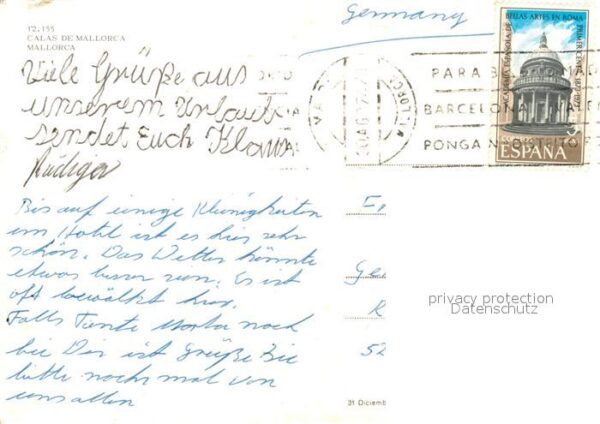 Germany
12.155
CALAS DE MALLORCA
MALLORCA
Viele Grüße aus
unserem Urlaub
sendet Euch Klaus
Rüdiger
Bis auf einige Kleinigkeiten
im Hotel ist es hier sehr
schön. Das Wetter könnte
etwas besser sein. Es ist
oft bewölkt hier.
Falls Tante Marta noch
bei Dir ist Grüße Sie
bitte nochmal von
uns allen
ACADEMIA ESPAÑOLA DE BELLAS ARTES EN ROMA
PRIMER CENT. 1873-1973
ESPAÑA
PARA
BARCELONA
PONGA
Ge
52
31 Diciemb
privacy protection
Datenschutz